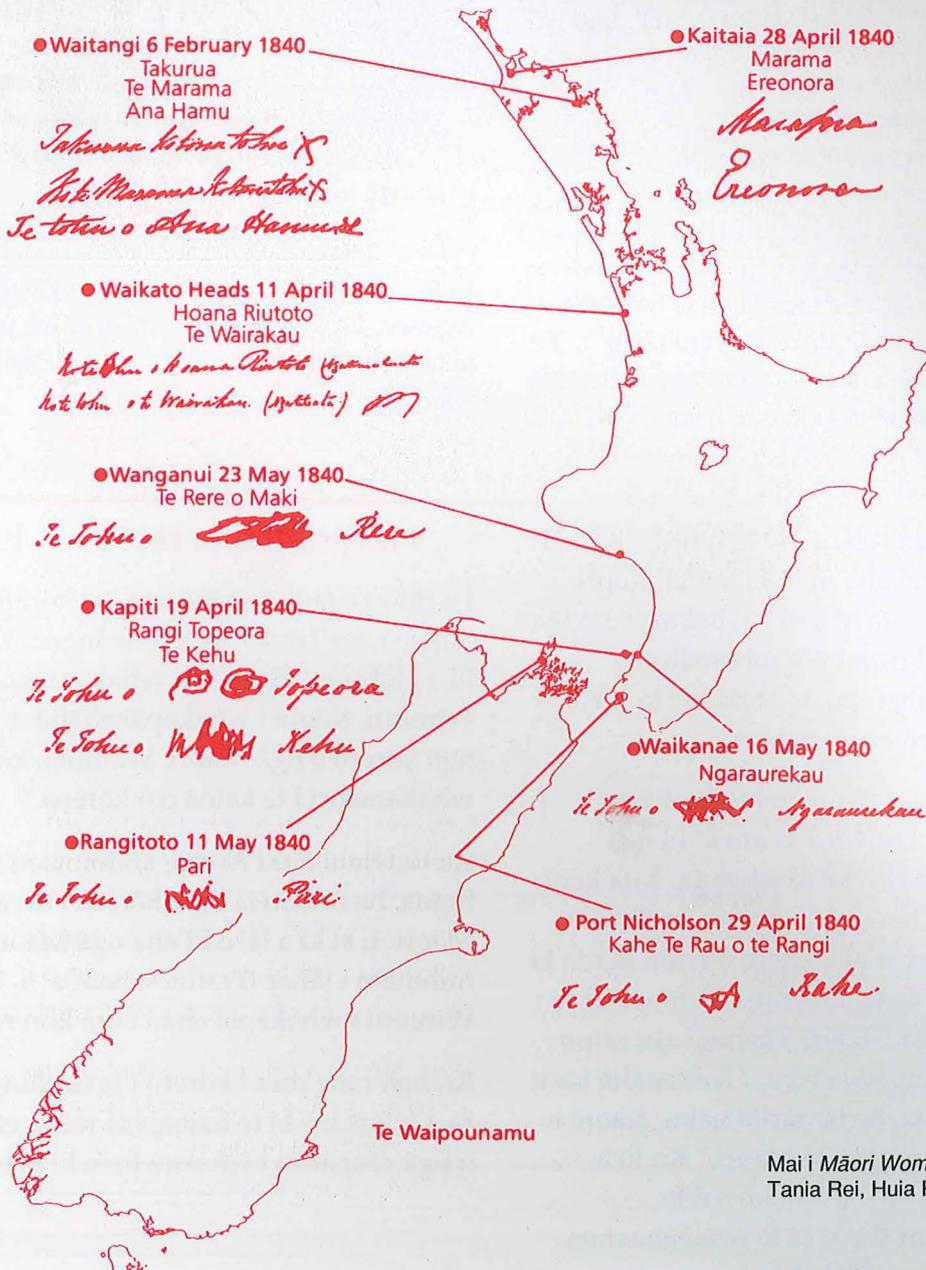 Waitangi 6 February 1840
Takurua
Te Marama
Ana Hamu
Te tohu o Ana Hamu
Kaitaia 28 April 1840
Marama
Ereonora
Marama
Ereonora
Waikato Heads 11 April 1840
Hoana Riutoto
Te Wairakau
Hoana Riutoto
Wanganui 23 May 1840
Te Rere o Maki
Te Tohu o Rere
Kapiti 19 April 1840
Rangi Topeora
Te Kehu
Te Tohu o Topeora
Te Tohu o Kehu
Waikanae 16 May 1840
Ngaraurekau
Te Tohu o Ngaraurekau
Rangitoto 11 May 1840
Pari
Te Tohu Pari
Port Nicholson 29 April 1840
Kahe Te Rau o te Rangi
Te Tohu o Kahe
Te Waipounamu
Mai i Māori Wom
Tania Rei, Huia P